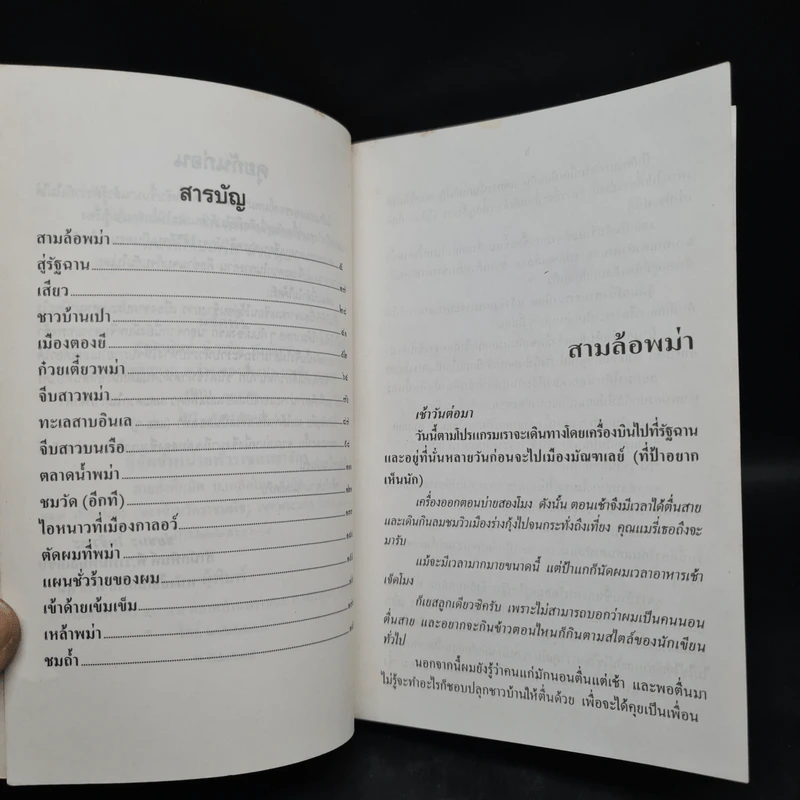 สารบัญ
สามล้อพม่า
สู่รัฐฉาน
เสียว
ชาวบ้านเปา
เมืองตองยี
ก๋วยเตี๋ยวพม่า
จีบสาวพม่า
ทะเลสาบอินเล
จีบสาวบนเรือ
ตลาดน้ำพม่า
ชมวัด (อีกที)
ไอหนาวที่เมืองกาลอว์
ตัดผมที่พม่า
แผนชั่วร้ายของผม
เข้าด้ายเข้มเข็ม
เหล้าพม่า
ชมถ้ำ
สามล้อพม่า
เช้าวันต่อมา
วันนี้ตามโปรแกรมเราจะเดินทางโดยเครื่องบินไปที่รัฐฉาน
และอยู่ที่นั่นหลายวันก่อนจะไปเมืองมัณฑเลย์ (ที่ป้าอยาก
เห็นนัก)
เครื่องออกตอนบ่ายสองโมง ดังนั้น ตอนเช้าจึงมีเวลาได้ตื่นสาย
และเดินกินลมชมวิวเมืองร่างกุ้งไปจนกระทั่งถึงเที่ยง คุณแมรี่เธอถึงจะ
มารับ
แม้จะมีเวลามากมายขนาดนี้ แต่ป้าแกก็นัดผมเวลาอาหารเช้า
เจ็ดโมง
ก็เยสลูกเดียวซิครับ เพราะไม่สามารถบอกว่าผมเป็นคนนอน
ตื่นสาย และอยากจะกินข้าวตอนไหนก็กินตามสไตล์ของนักเขียน
ทั่วไป
นอกจากนี้ผมยังรู้ว่าคนแก่มักนอนตื่นแต่เช้า และพอตื่นมา
ไม่รู้จะทำอะไรก็ชอบปลุกชาวบ้านให้ตื่นด้วย เพื่อจะได้คุยเป็นเพื่อน